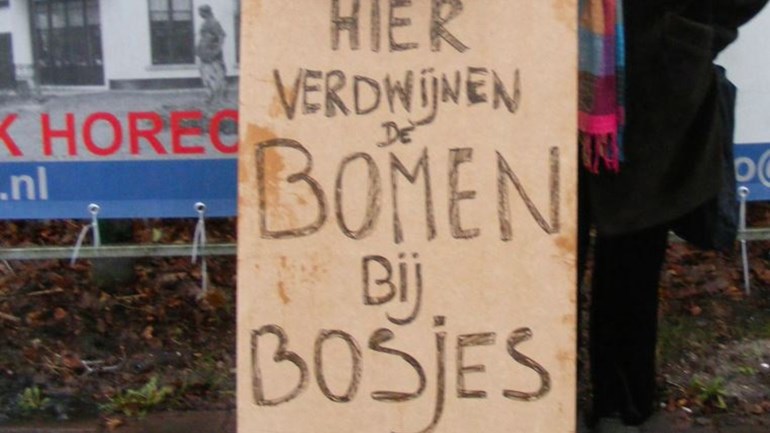 HIER
VERDWIJNEN
DE
BOMEN
BIJ
BOSJES
K HOREC
.nl
o@